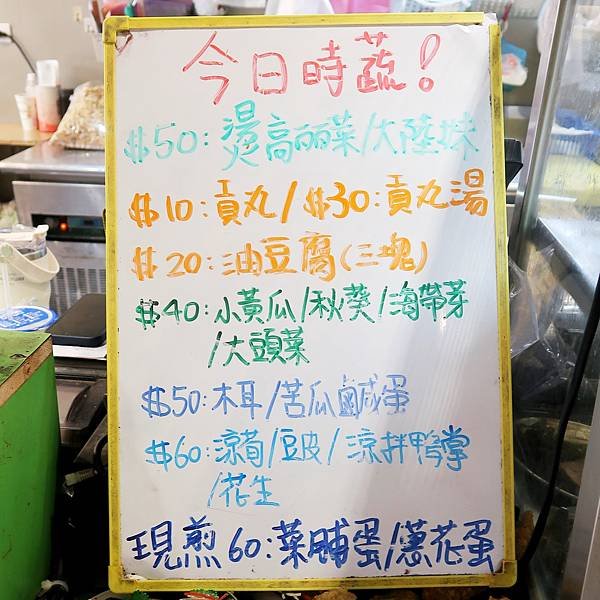 今日時蔬!
$50:燙高麗菜/大陸妹
$10:貢丸/$30:貢丸湯
$20:油豆腐(三塊)
$40:小黃瓜/秋葵/海帶芽
/大頭菜
$50:木耳/苦瓜鹹蛋
$60:涼筍/豆皮/涼拌鴨掌
/花生
現煎60:菜脯蛋/蔥花蛋